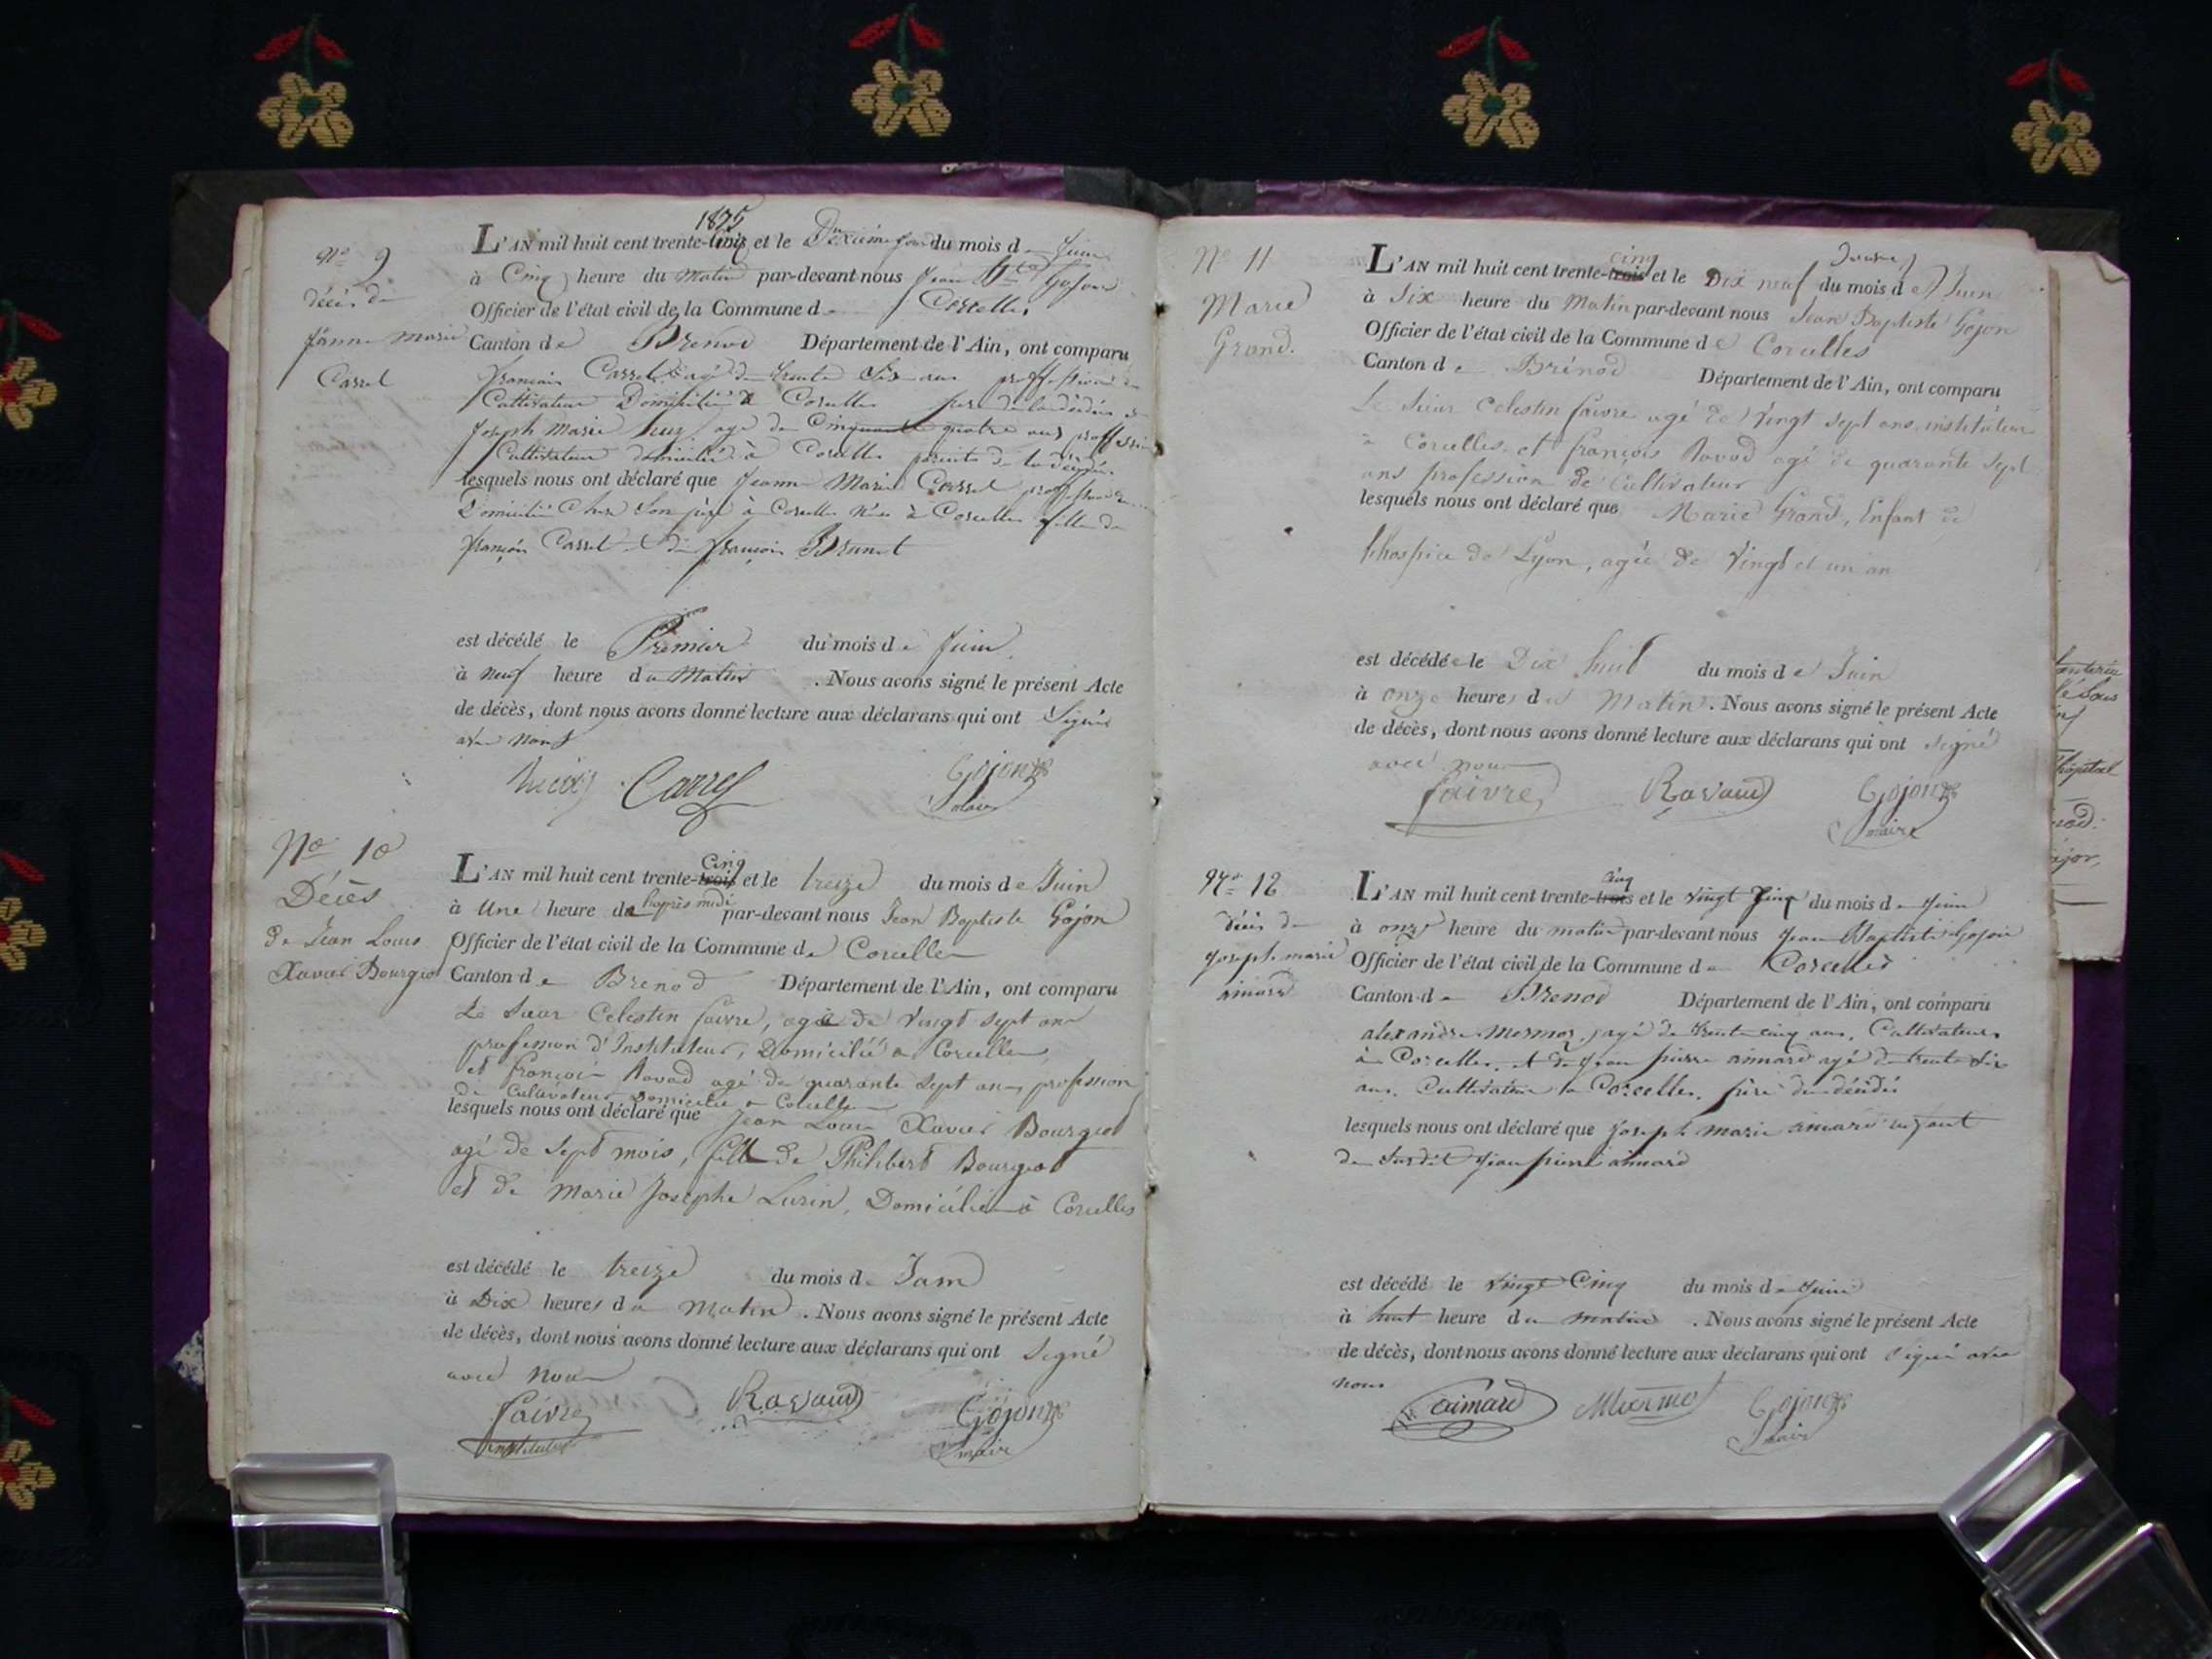 1835
N° 9
décès de
Jeanne Marie
Carrel
L'AN mil huit cent trente-cinq et le Deuxième jour du mois de Juin
à Cinq heure du Matin par-devant nous Jean Bte Gojon
Officier de l'état civil de la Commune de Corcelles
Canton de Brenod Département de l'Ain, ont comparu
françois Carrel agé de trente Six ans proffession de
Cultivateur Domicilié à Corcelles pere de la décédée et
Joseph Marie agé de Cinquante quatre ans proffession
Cultivateur domicilié à Corcelles parent de la décédée
lesquels nous ont déclaré que Jeanne Marie Carrel proffession de
Domicilié Chez Son père à Corcelles née à Corcelles fille de
françois Carrel et de françoise Brunet
est décédé le Premier du mois de Juin
à neuf heure du Matin . Nous avons signé le présent Acte
de décès, dont nous avons donné lecture aux déclarans qui ont Signé
avec nous
Carrel Gojon
maire
N° 10
Décès
de Jean Louis
Xavier Bourgeot
L'AN mil huit cent trente-trois cinq et le treize du mois de Juin
à Une heure de l'après midi par-devant nous Jean Baptiste Gojon
Officier de l'état civil de la Commune de Corcelles
Canton de Brenod Département de l'Ain, ont comparu
Le Sieur Celestin faivre, agé de Vingt sept ans
profession d'Instituteur, Domicilié à Corcelles,
et françois Ravod agé de quarante sept ans profession
de Cultivateur Domicilié à Corcelles
lesquels nous ont déclaré que Jean Louis Xavier Bourgeot
agé de Sept mois, fils de Philibert Bourgeot
et de Marie Josephe Lurin, Domicilié à Corcelles
est décédé le treize du mois de Juin
à Dix heures du matin . Nous avons signé le présent Acte
de décès, dont nous avons donné lecture aux déclarans qui ont Signé
avec nous
faivre Ravaud Gojon
instituteur maire
N° 11
Marie
Grand.
L'AN mil huit cent trente-trois cinq et le Dix neuf du mois de Juin
à Six heure du Matin par-devant nous Jean Baptiste Gojon
Officier de l'état civil de la Commune de Corcelles
Canton de Brénod Département de l'Ain, ont comparu
Le Sieur Celestin faivre agé de Vingt sept ans instituteur
à Corcelles et françois Ravod agé de quarante sept
ans profession de Cultivateur
lesquels nous ont déclaré que Marie Grand, Enfant de
l'hospice de Lyon, agée de Vingt et un an
est décédée le Dix huit du mois de Juin
à onze heures du Matin . Nous avons signé le présent Acte
de décès, dont nous avons donné lecture aux déclarans qui ont signé
avec nous
faivre Ravaud Gojon
maire
N° 12
décès de
joseph marie
aimard
L'AN mil huit cent trente-trois cinq et le vingt Cinq du mois de Juin
à onze heure du matin par-devant nous Jean Baptiste Gojon
Officier de l'état civil de la Commune de Corcelles
Canton de Brenod Département de l'Ain, ont comparu
alexandre Mermoz, agé de trente cinq ans, Cultivateur
à Corcelles, et de jean pierre aimard agé de trente six
ans, Cultivateur à Corcelles, père du décédé
lesquels nous ont déclaré que joseph marie aimard enfant
du Susdit jean pierre aimard
est décédé le vingt Cinq du mois de Juin
à huit heure du matin . Nous avons signé le présent Acte
de décès, dont nous avons donné lecture aux déclarans qui ont signé avec
nous
aimard Mermoz Gojon
maire
hôpital